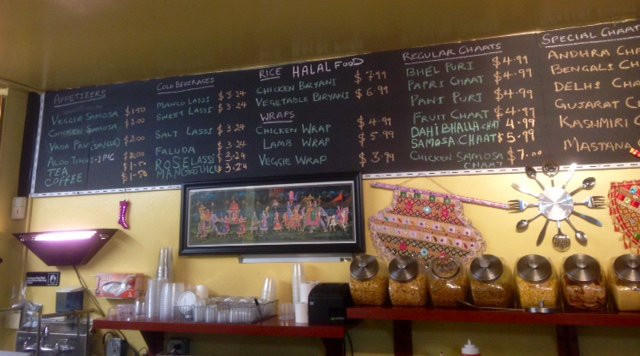 APPETIZERS
VEGGIE SAMOSA $1.50
CHICKEN SAMOSA $2.00
VADA PAV (SINGLE) $2.00
ALOO TIKKI-1PC $2.00
TEA
COFFEE $1.50
COLD BEVERAGES
MANGO LASSI $3.24
SWEET LASSI $3.24
SALT LASSI $3.24
FALUDA $3.24
ROSE LASSI $3.24
$3.24
RICE HALAL FOOD
CHICKEN BIRYANI $7.99
VEGETABLE BIRYANI $6.99
WRAPS
CHICKEN WRAP $4.99
LAMB WRAP $5.99
VEGGIE WRAP $3.99
REGULAR CHAATS
BHEL PURI $4.99
PAPRI CHAAT $4.99
PANI PURI $4.99
FRUIT CHAAT $4.99
DAHI BHALLA CHAAT $4.99
SAMOSA CHAAT $5.99
CHICKEN SAMOSA $7.00
CHAAT
SPECIAL CHAAT
ANDHRA CH
BENGALI CH
DELHI CHA
GUJARAT C
KASHMIRI C
MASTANA